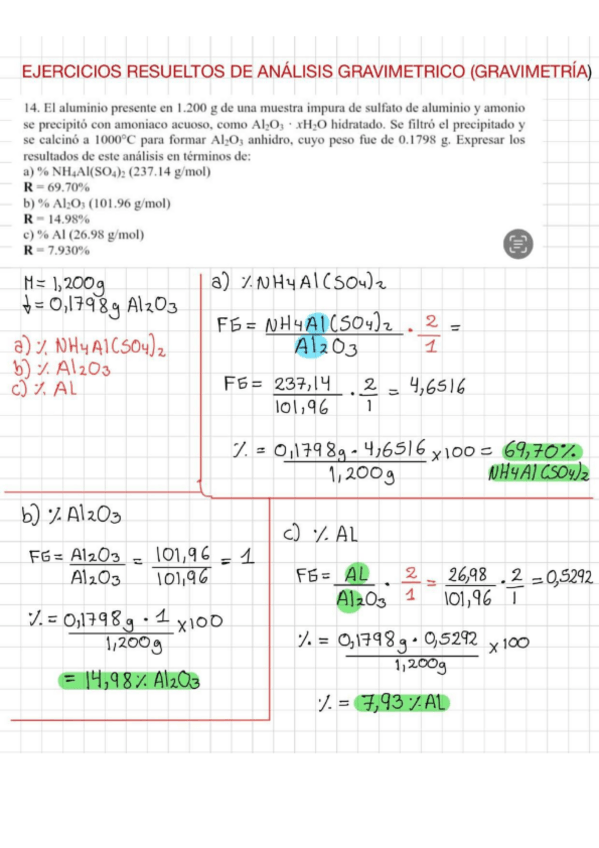 EJERCICIOS RESUELTOS DE ANÁLISIS GRAVIMETRICO (GRAVIMETRÍA)
14. El aluminio presente en 1.200 g de una muestra impura de sulfato de aluminio y amonio
se precipitó con amoniaco acuoso, como Al₂O₃ · xH₂O hidratado. Se filtró el precipitado y
se calcinó a 1000°C para formar Al₂O₃ anhidro, cuyo peso fue de 0.1798 g. Expresar los
resultados de este análisis en términos de:
a) % NH₄Al(SO₄)₂ (237.14 g/mol)
R = 69.70%
b) % Al₂O₃ (101.96 g/mol)
R = 14.98%
c) % Al (26.98 g/mol)
R = 7.930%
M = 1,200g
f = 0,1798g Al2O3
a) % NH4Al(SO4)2
b) % Al2O3
c) % AL
a) % NH4Al(SO4)2
FG = NH4Al(SO4)2 / Al2O3 · 2/1 =
FG = 237,14 / 101,96 · 2/1 = 4,6516
% = 0,1798g · 4,6516 / 1,200g x100 = 69,70%
NH4Al(SO4)2
b) % Al2O3
FG = Al2O3 / Al2O3 = 101,96 / 101,96 = 1
% = 0,1798g · 1 / 1,200g x100
= 14,98% Al2O3
c) % AL
FG = AL / Al2O3 · 2/1 = 26,98 / 101,96 · 2/1 = 0,5292
% = 0,1798g · 0,5292 / 1,200g x100
% = 7,93% AL